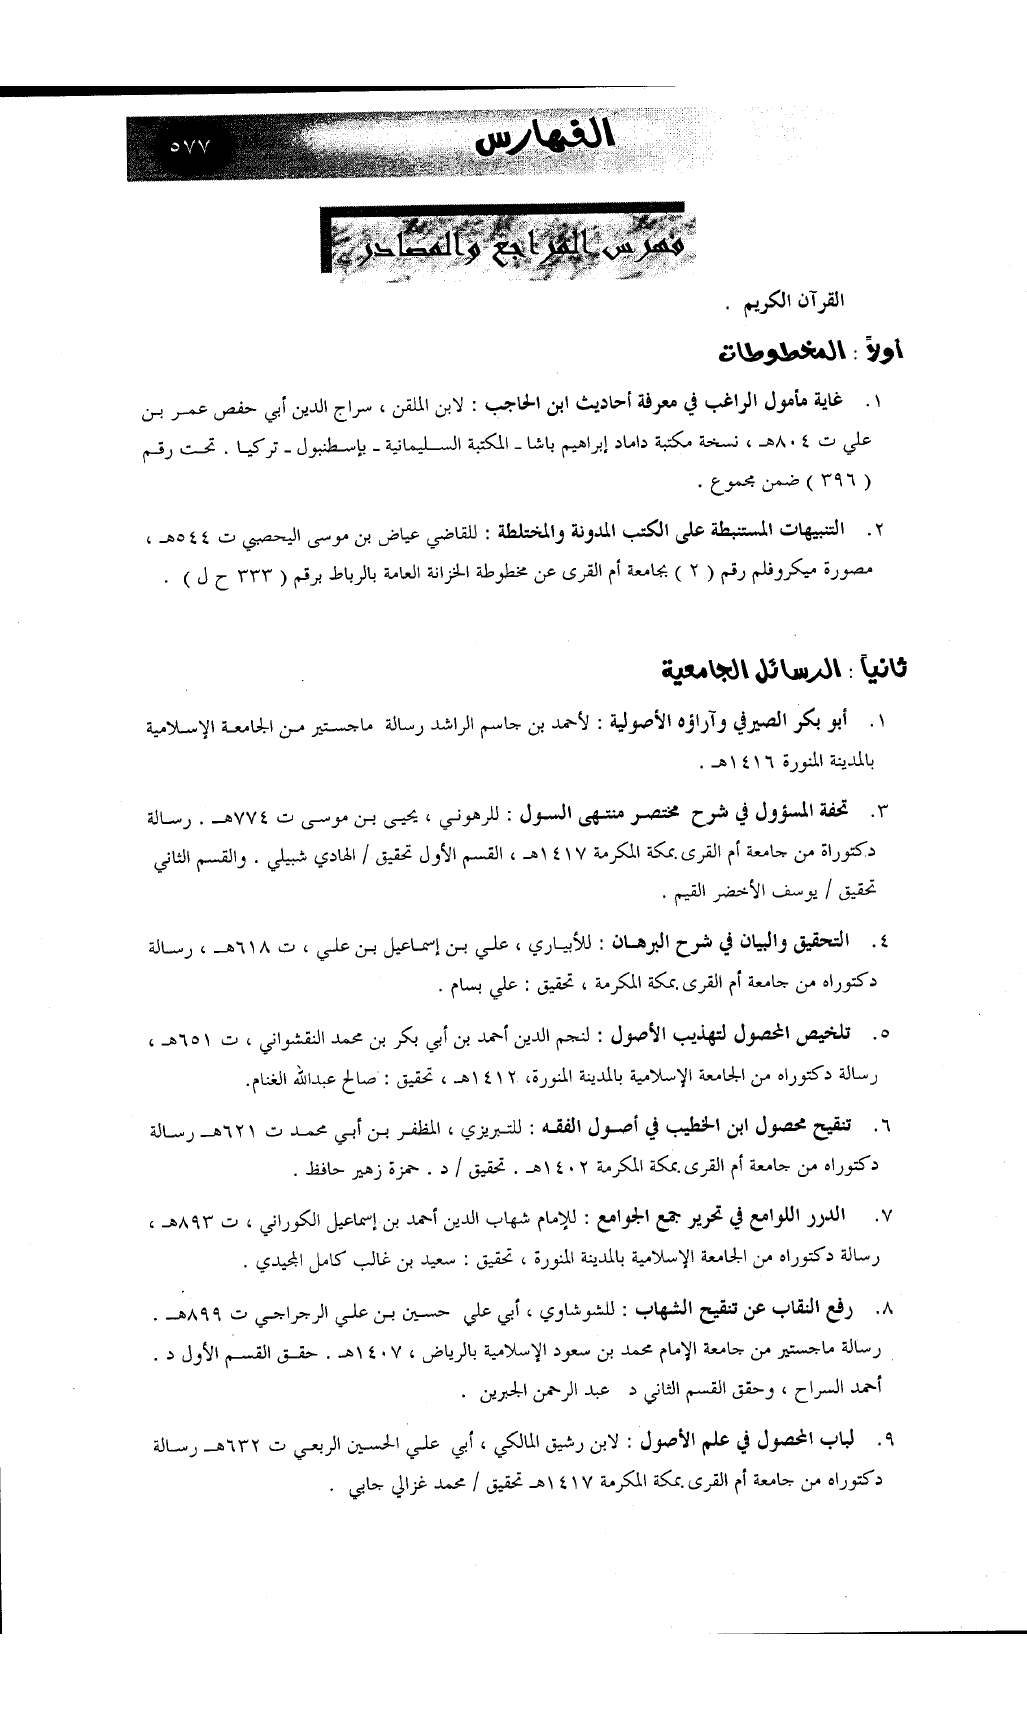 الفهارس
٥٧٧
فهرس المراجع والمصادر
القرآن الكريم .
أولاً : المخطوطات
١. غاية مأمول الراغب في معرفة أحاديث ابن الحاجب : لابن الملقن ، سراج الدين أبي حفص عمر بن
علي ت ٨٠٤هـ ، نسخة مكتبة داماد إبراهيم باشا ـ المكتبة السليمانية ـ بإسطنبول ـ تركيا . تحت رقم
( ٣٩٦ ) ضمن مجموع .
٢. التنبيهات المستنبطة على الكتب المدونة والمختلطة : للقاضي عياض بن موسى اليحصبي ت ٥٤٤هـ ،
مصورة ميكروفلم رقم ( ٢ ) بجامعة أم القرى عن مخطوطة الخزانة العامة بالرباط برقم ( ٣٣٣ ح ل ) .
ثانياً : الرسائل الجامعية
١. أبو بكر الصيرفي وآراؤه الأصولية : لأحمد بن جاسم الراشد رسالة ماجستير من الجامعة الإسلامية
بالمدينة المنورة ١٤١٦هـ .
٣. تحفة المسؤول في شرح مختصر منتهى السول : للرهوني ، يحيى بن موسى ت ٧٧٤هـ . رسالة
دكتوراة من جامعة أم القرى بمكة المكرمة ١٤١٧هـ ، القسم الأول تحقيق / الهادي شبيلي . والقسم الثاني
تحقيق / يوسف الأخضر القيم .
٤. التحقيق والبيان في شرح البرهان : للأبياري ، علي بن إسماعيل بن علي ، ت ٦١٨هـ ، رسالة
دكتوراه من جامعة أم القرى بمكة المكرمة ، تحقيق : علي بسام .
٥. تلخيص المحصول لتهذيب الأصول : لنجم الدين أحمد بن أبي بكر بن محمد النقشواني ، ت ٦٥١هـ ،
رسالة دكتوراه من الجامعة الإسلامية بالمدينة المنورة، ١٤١٢هـ ، تحقيق : صالح عبدالله الغنام.
٦. تنقيح محصول ابن الخطيب في أصول الفقه : للتبريزي ، المظفر بن أبي محمد ت ٦٢١هـ رسالة
دكتوراه من جامعة أم القرى بمكة المكرمة ١٤٠٢هـ . تحقيق / د . حمزة زهير حافظ .
٧. الدرر اللوامع في تحرير جمع الجوامع : للإمام شهاب الدين أحمد بن إسماعيل الكوراني ، ت ٨٩٣هـ ،
رسالة دكتوراه من الجامعة الإسلامية بالمدينة المنورة ، تحقيق : سعيد بن غالب كامل المجيدي .
٨. رفع النقاب عن تنقيح الشهاب : للشوشاوي ، أبي علي حسين بن علي الرجراجي ت ٨٩٩هـ .
رسالة ماجستير من جامعة الإمام محمد بن سعود الإسلامية بالرياض ، ١٤٠٧هـ . حقق القسم الأول د .
أحمد السراح ، وحقق القسم الثاني د عبد الرحمن الجبرين .
٩. لباب المحصول في علم الأصول : لابن رشيق المالكي ، أبي علي الحسين الربعي ت ٦٣٢هـ رسالة
دكتوراه من جامعة أم القرى بمكة المكرمة ١٤١٧هـ تحقيق / محمد غزالي جابي .